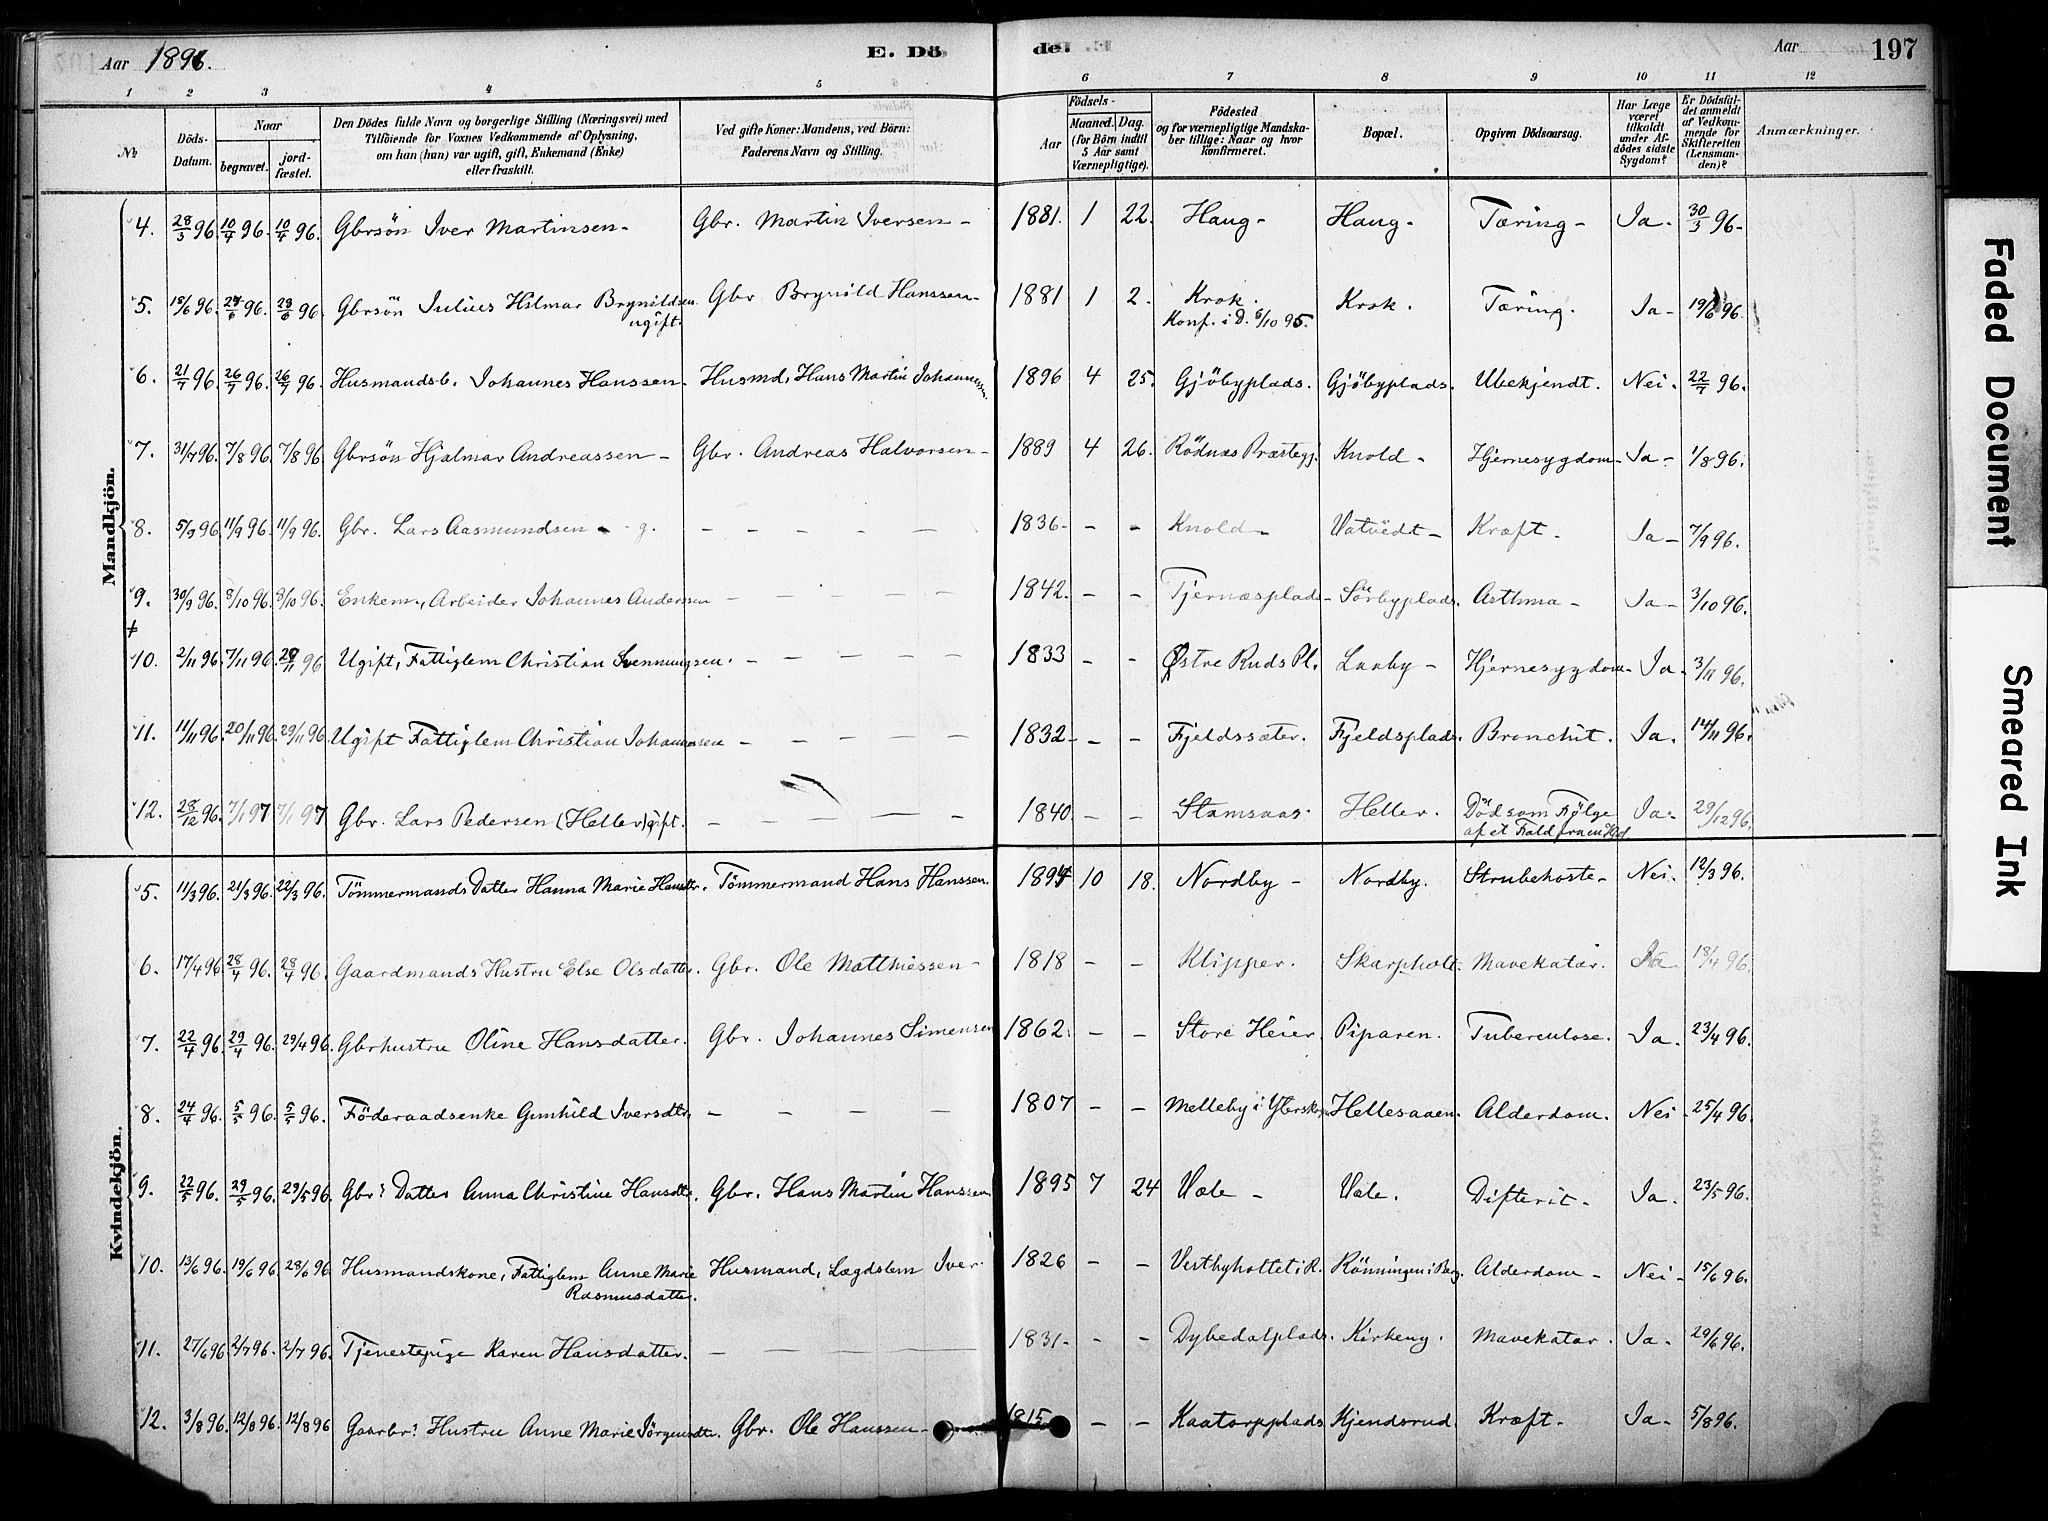 Aar 1896. E. Dö de. Aar 197
1 2 3 4 5 6 7 8 9 10 11 12
№
Döds-Datum.
Naar
begravet.
jord-fæstet.
Den Dödes fulde Navn og borgerlige Stilling (Næringsvei) med
Tilföiende for Voxnes Vedkommende af Oplysning,
om han (hun) var ugift, gift, Enkemand (Enke)
eller fraskilt.
Ved gifte Koner: Mandens, ved Börn:
Faderens Navn og Stilling.
Födsels-
Aar
Maaned. Dag.
(for Börn indtil
5 Aar samt
Værnepligtige).
Födested
og for værnepligtige Mandska-
ber tillige: Naar og hvor
konfirmeret.
Bopæl.
Opgiven Dödsaarsag.
Har Læge
været
tilkaldt
under Af-
dödes sidste
Sygdom?
Er Dödsfal-
det anmeldt
af Vedkom-
mende for
Skifteretten
(Lensman-
den)?
Anmærkninger.
Mandkjön.
4. 28/3 96. 10/4 96. 10/4 96. Gbrsön Iver Martinsen - Gbr. Martin Iversen - 1881. 1 22. Haug - Haug - Tæring - Ja - 30/3 96 -
5. 18/6 96. 28/6 96. 28/6 96 Gbrsön Julius Hilmar Brynildsen ugift. Gbr. Brynild Hanssen - 1881 1 2. Krok. Konf. i D. 6/10 95. Krok. Tæring. Ja - 19/6 96.
6. 21/7 96. 26/7 96. 26/7 96. Husmandsb. Johannes Hanssen. Husmd. Hans Martin Johannessen 1896 4 25. Gjöbyplads. Gjöbyplads. Ubekjendt. Nei. 22/7 96.
7. 31/7 96. 7/8 96. 7/8 96 Gbrsön Hjalmar Andreassen - Gbr. Andreas Halvorsen - 1889 4 26. Rödnæs Præstegj. Knold - Hjernesygdom - Ja - 1/8 96.
8. 5/9 96. 11/9 96. 11/9 96. Gbr. Lars Aasmundsen - g. - - - - - 1836 - - - Knold - Vatvedt - Kræft - Ja - 7/9 96.
9. 30/9 96. 8/10 96. 8/10 96. Enkem., Arbeider Johannes Anderssen - - - - - 1842. - - Tjernæsplads - Sörbyplads. Asthma - Ja - 3/10 96.
10. 2/11 96. 7/11 96. 29/11 96 Ugift, Fattiglem Christian Svenningsen. - - - - - 1833 - - Østre Ruds Pl. Laaby - Hjernesygdom - Ja - 3/11 96.
11. 11/11 96. 20/11 96. 29/11 96 Ugift Fattiglem Christian Johannessen - - - - - 1832 - - - Fjeldssæter. Fjeldsplads. Bronchit. Ja. 14/11 96.
12. 28/12 96. 7/1 97 7/1 97 Gbr. Lars Pedersen (Heller) gift. - - - - - 1840 - - Stamsaas. Heller. Död som Fölge af et Fald fra en Ja - 29/12 96.
Kvindekjön.
5. 11/3 96. 21/3 96. 22/3 96. Tömmermands Datter Hanna Marie Hansdtr. Tömmermand Hans Hanssen. 1894 10 18. Nordby - Nordby. Strubehoste - Nei. 12/3 96.
6. 17/4 96. 28/4 96. 28/4 96. Gaardmands Hustru Else Olsdatter. Gbr. Ole Matthiessen - 1818 - - Klipper. Skarpholt. Mavekatar. Ja 18/4 96.
7. 22/4 96. 29/4 96. 29/4 96. Gbrhustru Oline Hansdatter. Gbr. Johannes Simensen 1862. - - Store Heier. Piparen. Tuberculose. Ja. 23/4 96.
8. 24/4 96. 5/5 96. 5/5 96. Föderaadsenke Gunhild Iversdtr. - - - - 1807 - - Melleby i Hellesaaen. Alderdom. Nei - 25/4 96.
9. 22/5 96. 29/5 96. 29/5 96. Gbr: Datter Anna Christine Hansdtr. Gbr. Hans Martin Hanssen. 1895 7 24 Vale - Vale. Difterit - Ja. 23/5 96.
10. 13/6 96. 19/6 96. 28/6 96 Husmandskone, Fattiglem Anne Marie Rasmusdatter. Husmand, Lægdslem Iver 1826 - - Vestbyhottet i R. Rönningen i Alderdom - Nei - 15/6 96.
11. 27/6 96 2/7 96. 2/7 96. Tjenestepige Karen Hansdatter. - - - - 1831 - - - Dybedalplads. Kirkeng. Mavekatar. Ja. 29/6 96.
12. 3/8 96. 12/8 96. 12/8 96 Gaardbr: Hustru Anne Marie Jörgensdtr. Gbr. Ole Hanssen - 1815 - - Kaatorpplads Kjendsrud. Kræft - Ja - 5/8 96.
Faded Document
Smeared Ink